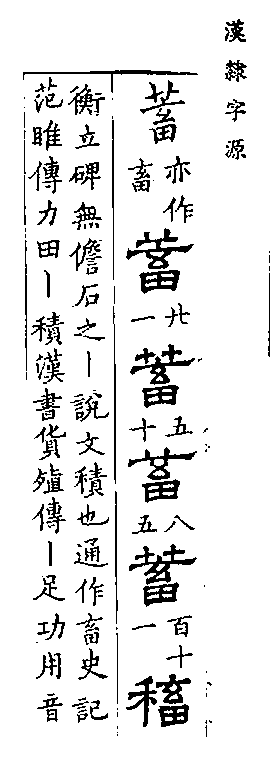 漢隸字源
蓄亦作畜蓄廿一蓄五十蓄八五蓄百十一稸
衡立碑無儋石之丨說文積也通作畜史記
范睢傳力田丨積漢書貨殖傳丨足功用音